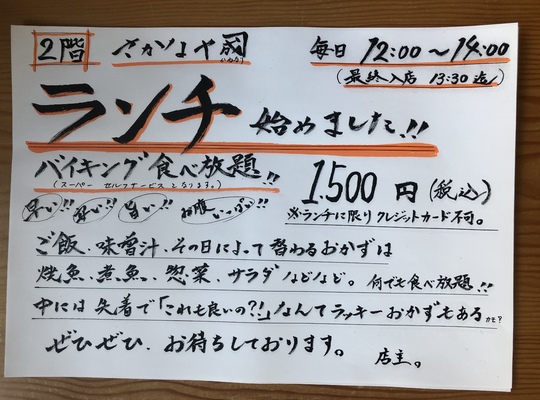 2階 さかなよや 毎日 12:00〜14:00
(最終入店 13:30迄)
ランチ 始めました!!
バイキング食べ放題!!
(スーパー セルフサービス となります。)
早い!! 安い!! 旨い!! お腹いっぱい!!
1500円(税込)
※ランチに限りクレジットカード不可。
ご飯、味噌汁、その日によって替わるおかずは
焼魚、煮魚、惣菜、サラダなどなど。何でも食べ放題!!
中には先着で「これも良いの?!」なんてラッキーおかずもあるカモ?
ぜひぜひ、お待ちしております。
店主。